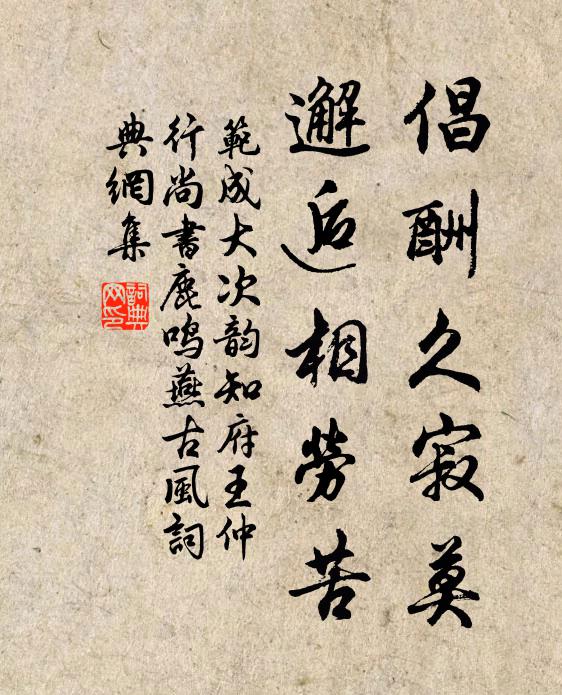 倡酬久寂莫
邂逅相勞苦
範成大次韵知府王仲
行尚書鹿鳴燕古風詞
典網集
詞典
网印